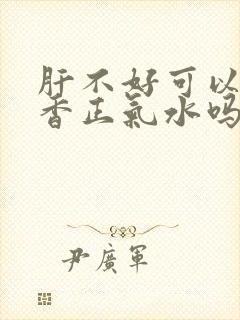 肝不好可以
香正氣水吗
尹廣軍